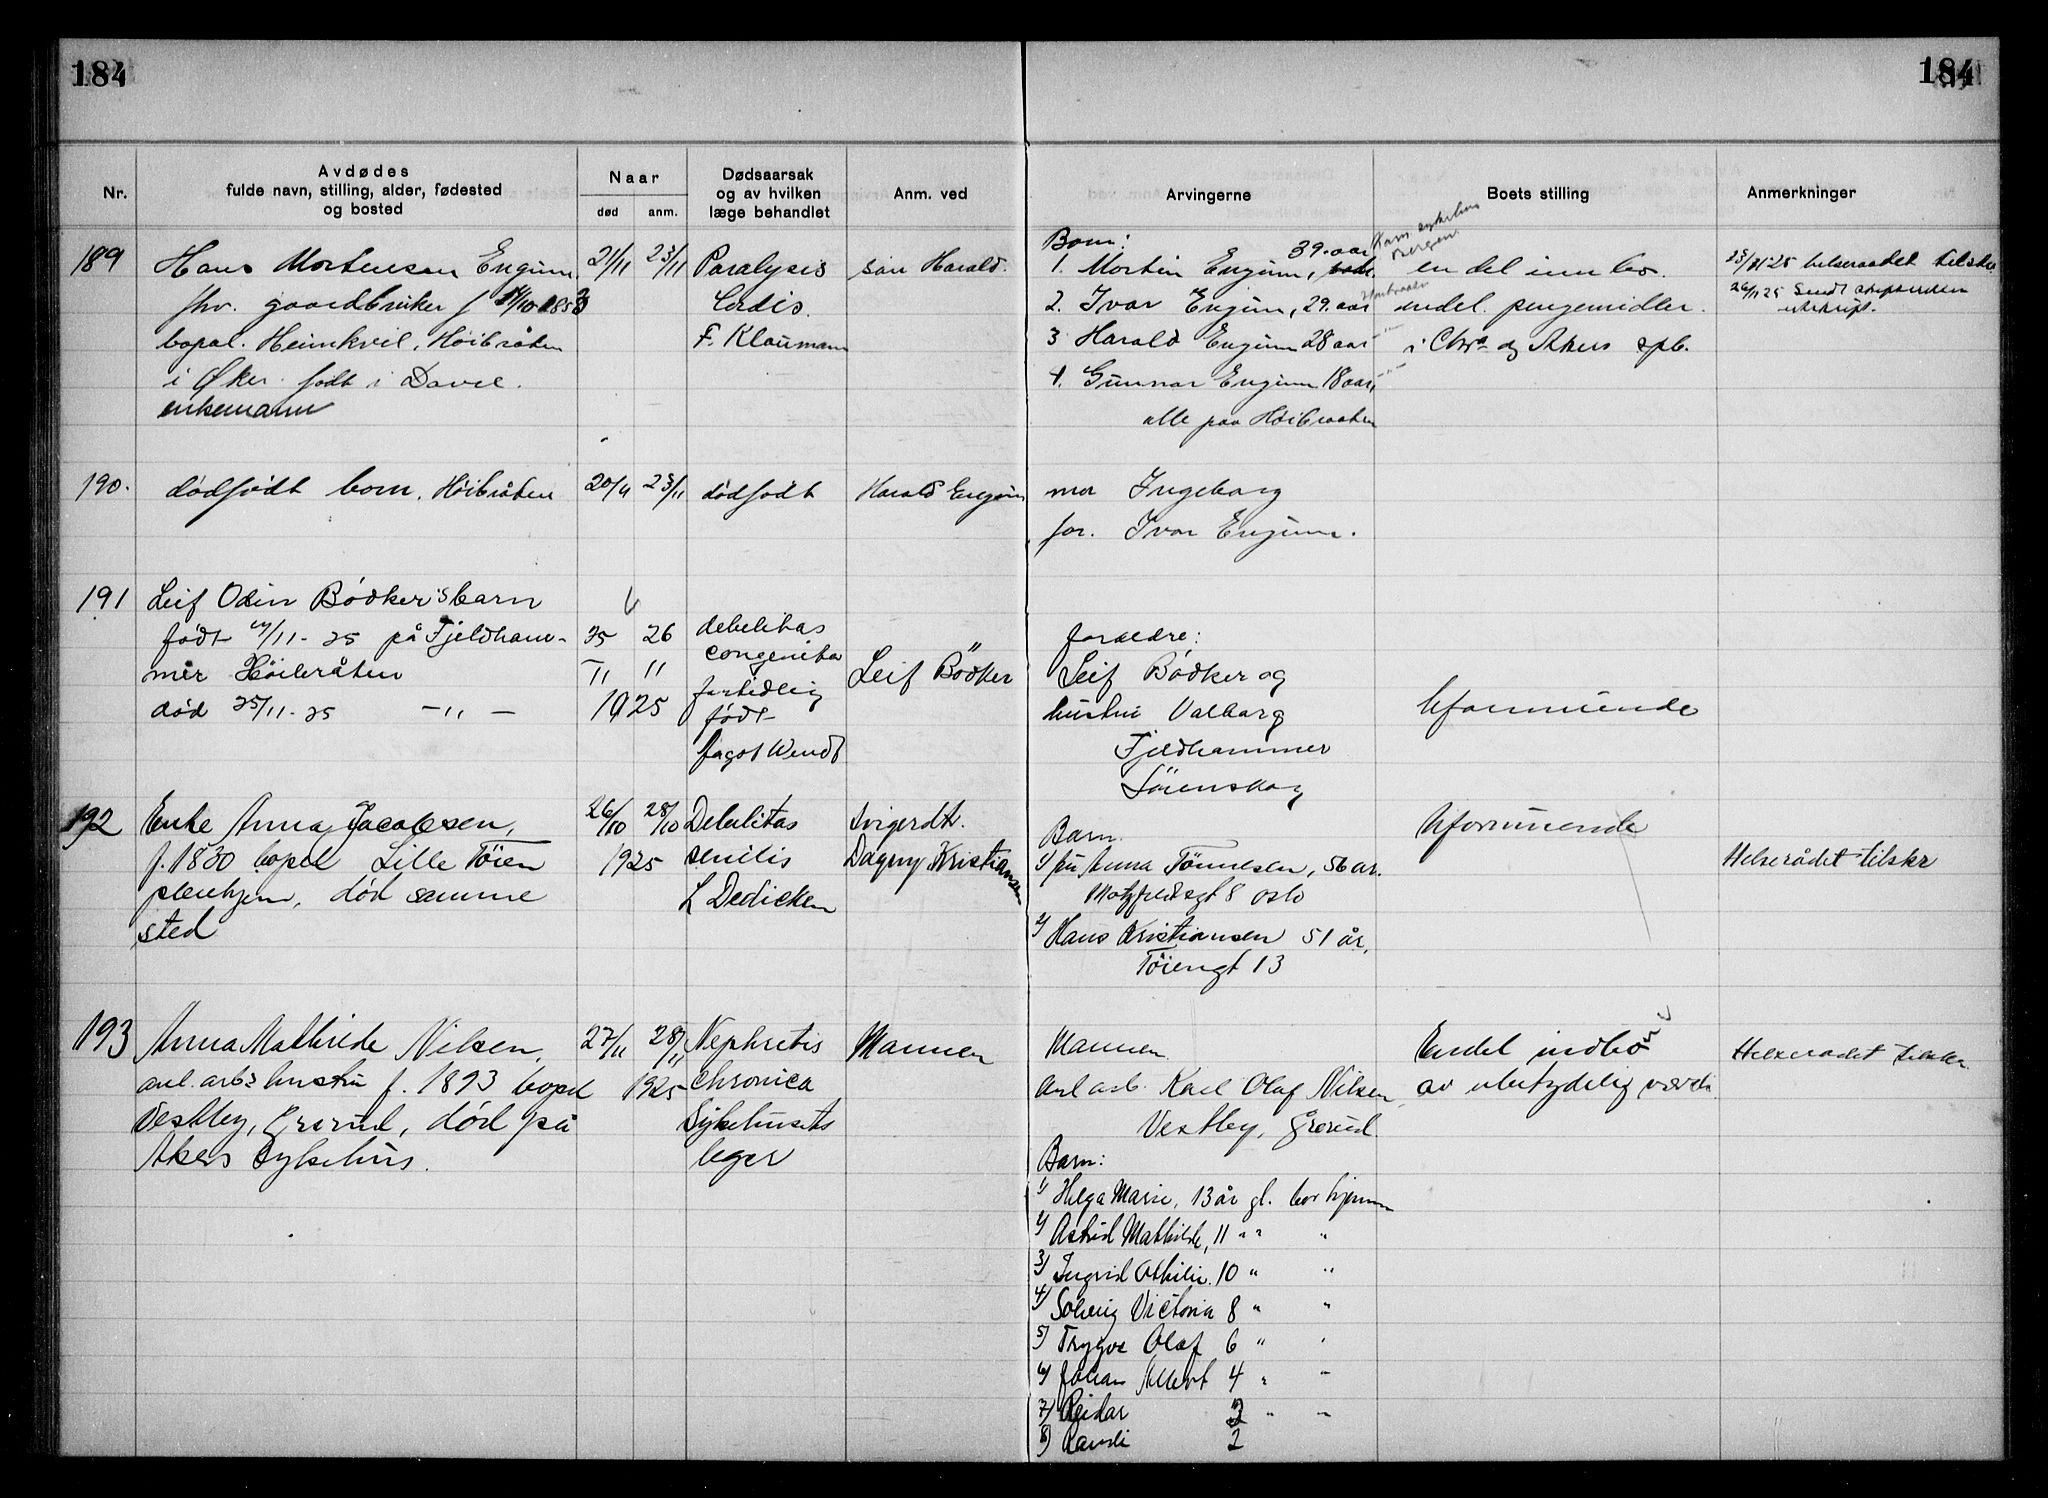 184
184
Nr.
Avdødes
fulde navn, stilling, alder, fødested
og bosted
Naar
død
anm.
Dødsaarsak
og av hvilken
læge behandlet
Anm. ved
Arvingerne
Boets stilling
Anmerkninger
189
Hans Mortensen Engum
fhv. gaardbruker f
bopæl. Heimkvil, Høibråten
i Øker. født i
enkemann
21/11
23/11
Paralysis
Cordis.
F. Klaumann
søn Harald.
Barn:
39. aar
1. Morten Engum,
2. Ivar Engum, 29. aar
3 Harald Engum 28 aar
4. Gunnar Engum 18 aar,
alle paa Høibraaten
en del innbo.
endel pengemidler.
i Chra og Akers spb.
23/11 25 helseraadet tilskr.
26/11 25 Sendt
utskrift.
190.
dødfødt barn, Høibråten
20/11
23/11
dødfødt
Harald Engum
mor Ingeborg
far. Ivar Engum.
191
Leif Odin Bödker's barn
født /11-25 på Fjeldham-
mer Høibråten
død 25/11-25 -"-
25 26
11 11
1925
debilitas
congenita
fortidlig
født
Wendt
Leif Bödker
foreldre:
Leif Bødker og
hustru Valborg
Fjeldhammer
Lörenskog
Uformuende
192
Enke Anna Jacobsen,
f. 1830 bopæl Lille Töien
pleiehjem, död samme
sted
26/10
28/10
1925
Debilitas
senilis
L Dedichen
svigerdtr.
Dagny Kristiansen
Barn.
1) fru Anna Tönnesen, 56 år.
Motzfeldtsgt 8 Oslo
2) Hans Kristiansen 51 år,
Töiengt 13
Uformuende
Helserådet tilskr
193
Anna Mathilde Nilsen,
anl. arbs hustru f. 1893 bopæl
Vestby, Grorud, död på
Akers Sykehus.
27/11
28/11
1925
Nephritis
chronica
Sykehusets
leger
Mannen
Mannen
anl arb. Karl Olaf Nilsen
Vestby, Grorud.
Barn:
1) Helga Marie, 13 år gl. bor hjemme
2) Astrid Mathilde, 11 " " "
3) Ingrid Othilie. 10 " "
4) Solveig Victoria 8 " "
5) Trygve Olaf 6 " "
6) Johan Albert 4 " "
7) Reidar 3 " "
8) Randi 2
Endel indbo
av ubetydelig værdi
Helserådet tilskr.